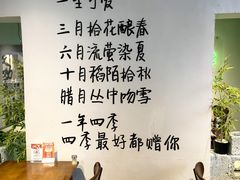 一生可爱
三月拾花酿春
六月流萤染夏
十月稻陌拾秋
腊月丛中吻雪
一年四季
四季最好都赠你